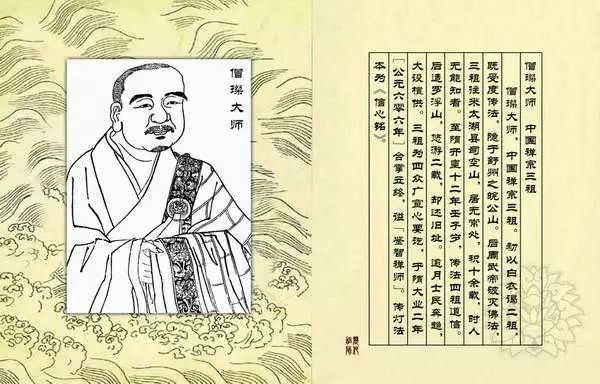 僧璨大师
僧璨大师 中国禅宗三祖
僧璨大师，中国禅宗三祖。初以白衣谒二祖，
既受度传法，隐于舒州之皖公山。后周武帝破灭佛法，
三祖往来太湖县司空山，居无常处，积十余载，时人
无能知者。至隋开皇十二年壬子岁，传法四祖道信。
后适罗浮山，悠游二载，却还旧址。逾月士民奔趋，
大设檀供。三祖为四众广宣心要讫，于隋大业二年
［公元六零六年］合掌立终，谥「鉴智禅师」。传灯法
本为《信心铭》。